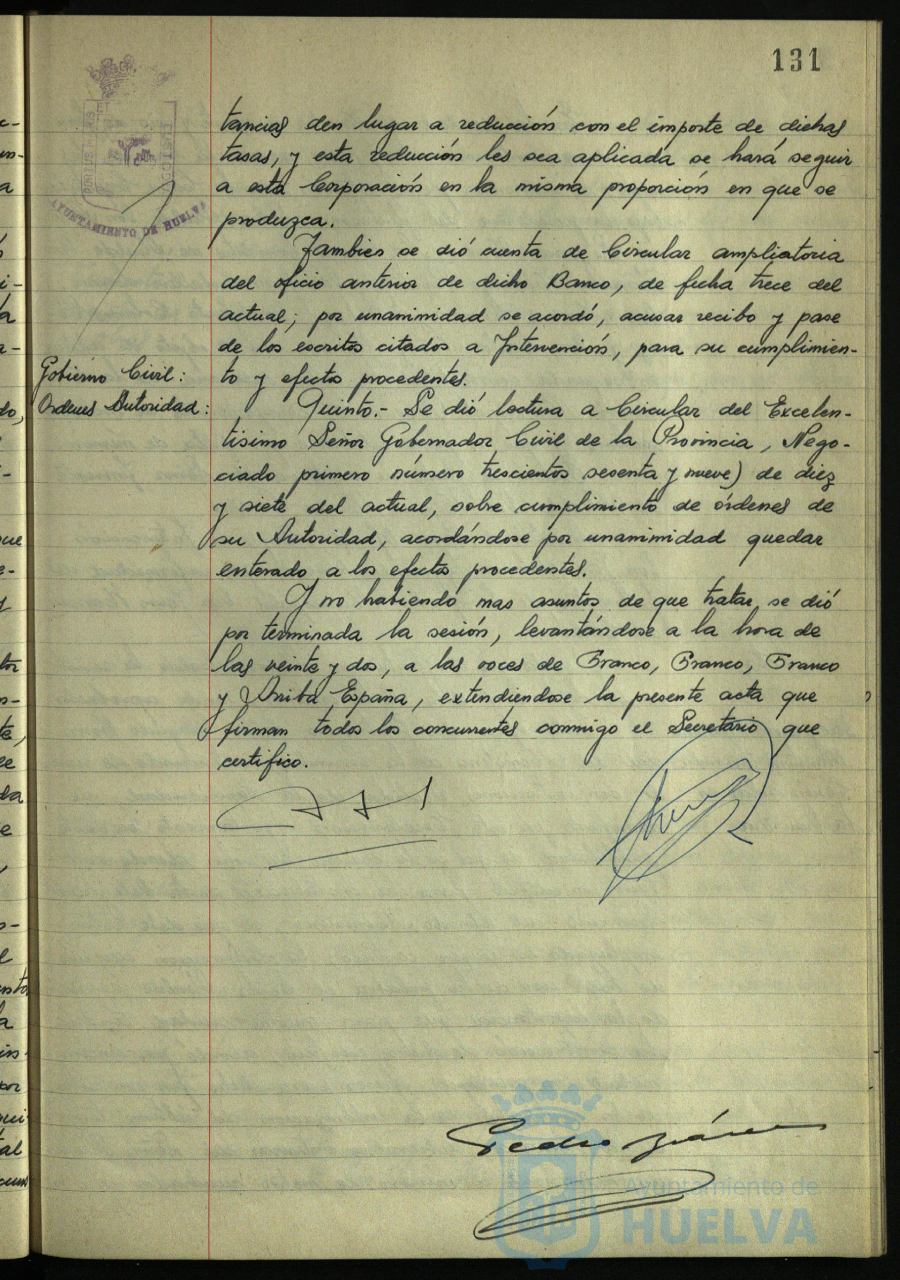 131
tancias den lugar a reducción con el importe de dichas
tasas, y esta reducción les sea aplicada se hará seguir
a esta Corporación en la misma proporción en que se
produzca.
Tambien se dió cuenta de Circular ampliatoria
del oficio anterior de dicho Banco, de fecha trece del
actual; por unanimidad se acordó, acusar recibo y pase
de los escritos citados a Intervención, para su cumplimien-
to y efectos procedentes.
Gobierno Civil:
Ordenes Autoridad:
Quinto.- Se dió lectura a Circular del Excelen-
tisimo Señor Gobernador Civil de la Provincia, Nego-
ciado primero número trescientos sesenta y nueve) de diez
y siete del actual, sobre cumplimiento de órdenes de
su Autoridad, acordándose por unanimidad quedar
enterado a los efectos procedentes.
Y no habiendo mas asuntos de que tratar, se dió
por terminada la sesión, levantándose a la hora de
las veinte y dos, a las voces de Franco, Franco, Franco
y Arriba España, extendiendose la presente acta que
firman todos los concurrentes conmigo el Secretario que
certifico.
Pedro
AYUNTAMIENTO DE HUELVA
Ayuntamiento de
HUELVA